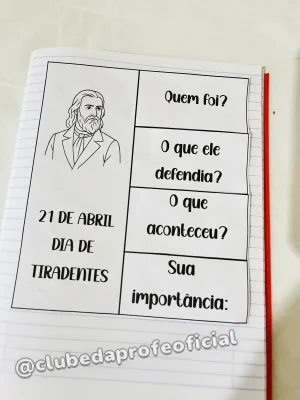 21 DE ABRIL
DIA DE
TIRADENTES
Quem foi?
O que ele
defendia?
O que
aconteceu?
Sua
importância:
@clubedaprofeoficial